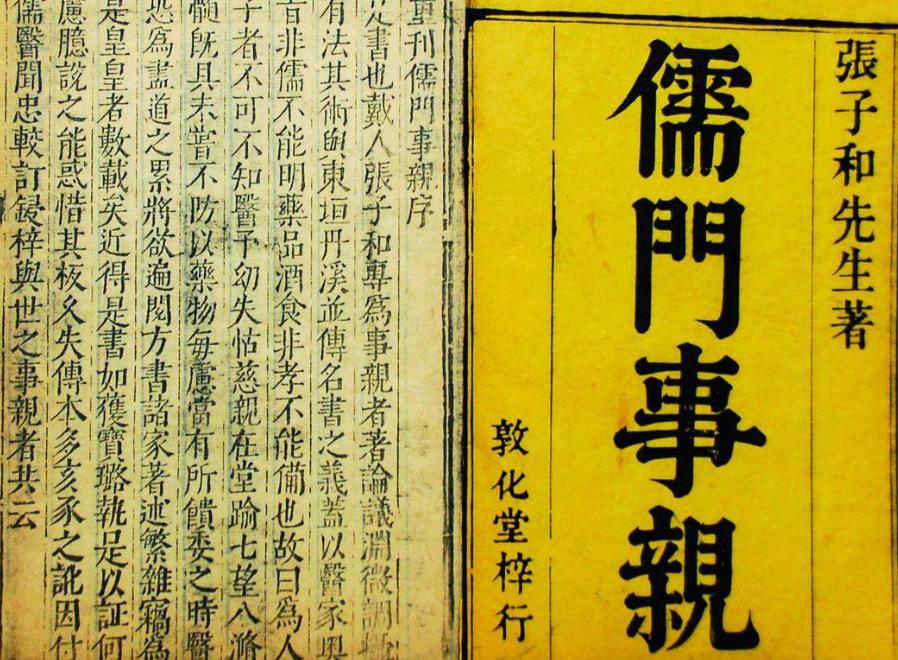 張子和先生著
儒門事親
敦化堂梓行
重刊儒門事親序
書也戴人張子和專為事親者著論議淵微調
有法其術與東垣丹溪並傳名書之義蓋以醫家奧
旨非儒不能明藥品酒食非孝不能備也故曰為人
子者不可不知醫予幼失怙慈親在堂踰七望八滫
髓既具未嘗不防以藥物每慮當有所饋委之時醫
恐為盡道之累將欲遍閱方書諸家著述繁雜竊為
是皇皇者數載矣近得是書如獲寶璐執足以証何
慮臆說之能惑惜其板久失傳本多亥豕之訛因付
儒醫聞忠較訂鋟梓與世之事親者共云